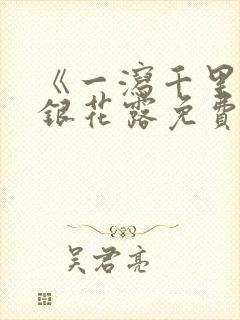 《一泻千里
银花露免費
吴君亮